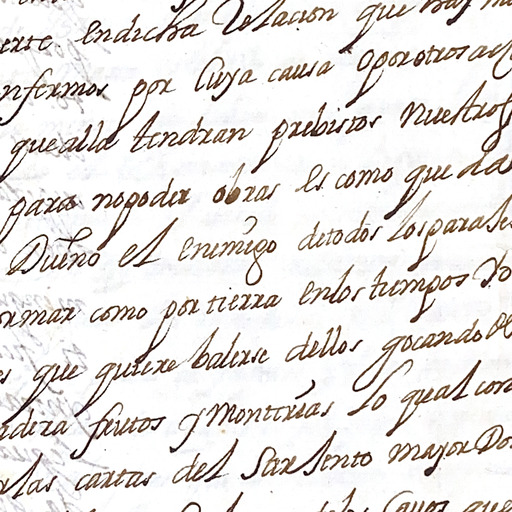 erte. en dicha Relacion que hay
nfermos por cuya causa o por otros
que alla tendran prebistos nuestros
para no poder obras es como queda
Dueño el enemigo de todos los para
ormar como por tierra en los tiempos
es que quiere balerse dellos goçando de
adera frutos y Monterias lo qual con
las cartas del Sarsento mayor Do